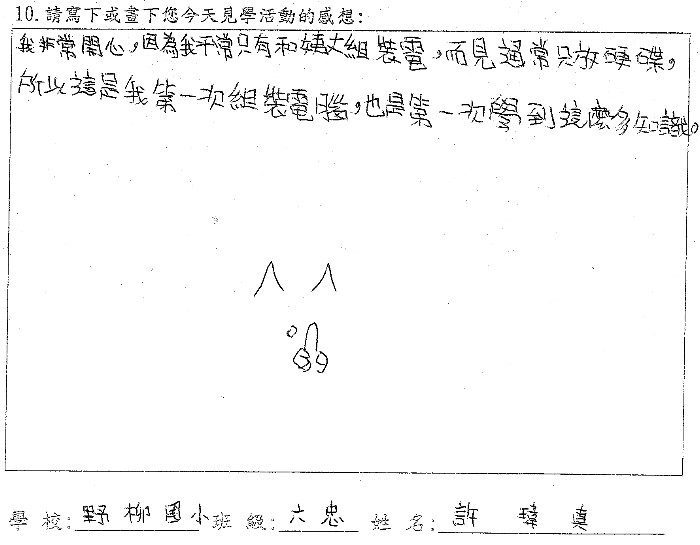 10.請寫下或畫下您今天見學活動的感想:
我非常開心,因為我平常只有和姨丈組裝電,而見通常只放硬碟,
所以這是我第一次組裝電腦,也是第一次學到這麼多知識。
學 校:野柳國小班 級:六忠 姓 名:許瑋真